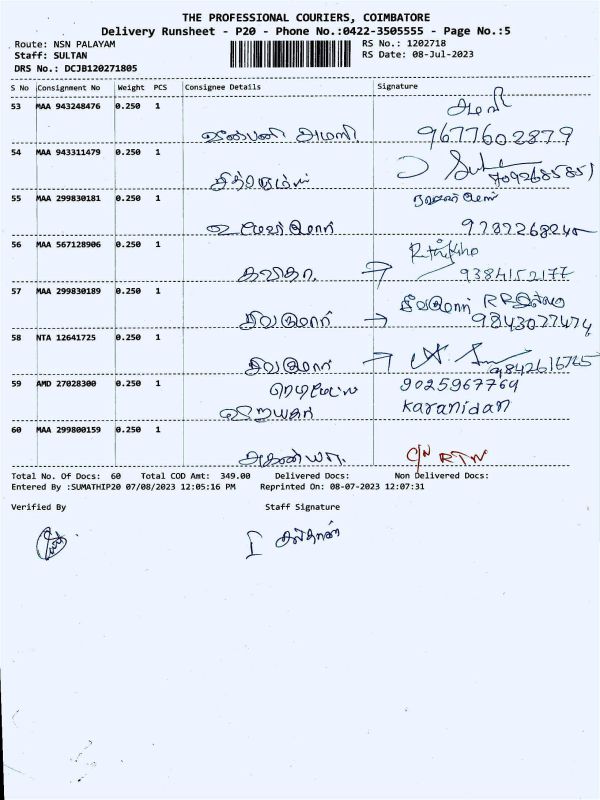 THE PROFESSIONAL COURIERS, COIMBATORE
Delivery Runsheet - P20 - Phone No.:0422-3505555 - Page No.:5
Route: NSN PALAYAM RS No.: 1202718
Staff: SULTAN RS Date: 08-Jul-2023
DRS No.: DCJB120271805
S No Consignment No Weight PCS Consignee Details Signature
53 MAA 943248476 0.250 1
9677602879
54 MAA 943311479 0.250 1
7092685851
55 MAA 299830181 0.250 1
56 MAA 567128906 0.250 1
கவிதா 9384152177
57 MAA 299830189 0.250 1
சிவகுமார் 9843077474
58 NTA 12641725 0.250 1
சிவகுமார் 9842616765
59 AMD 27028300 0.250 1
9025967769
Karanidan
60 MAA 299800159 0.250 1
C/N RTN
Total No. Of Docs: 60 Total COD Amt: 349.00 Delivered Docs: Non Delivered Docs:
Entered By :SUMATHIP20 07/08/2023 12:05:16 PM Reprinted On: 08-07-2023 12:07:31
Verified By Staff Signature
சுல்தான்